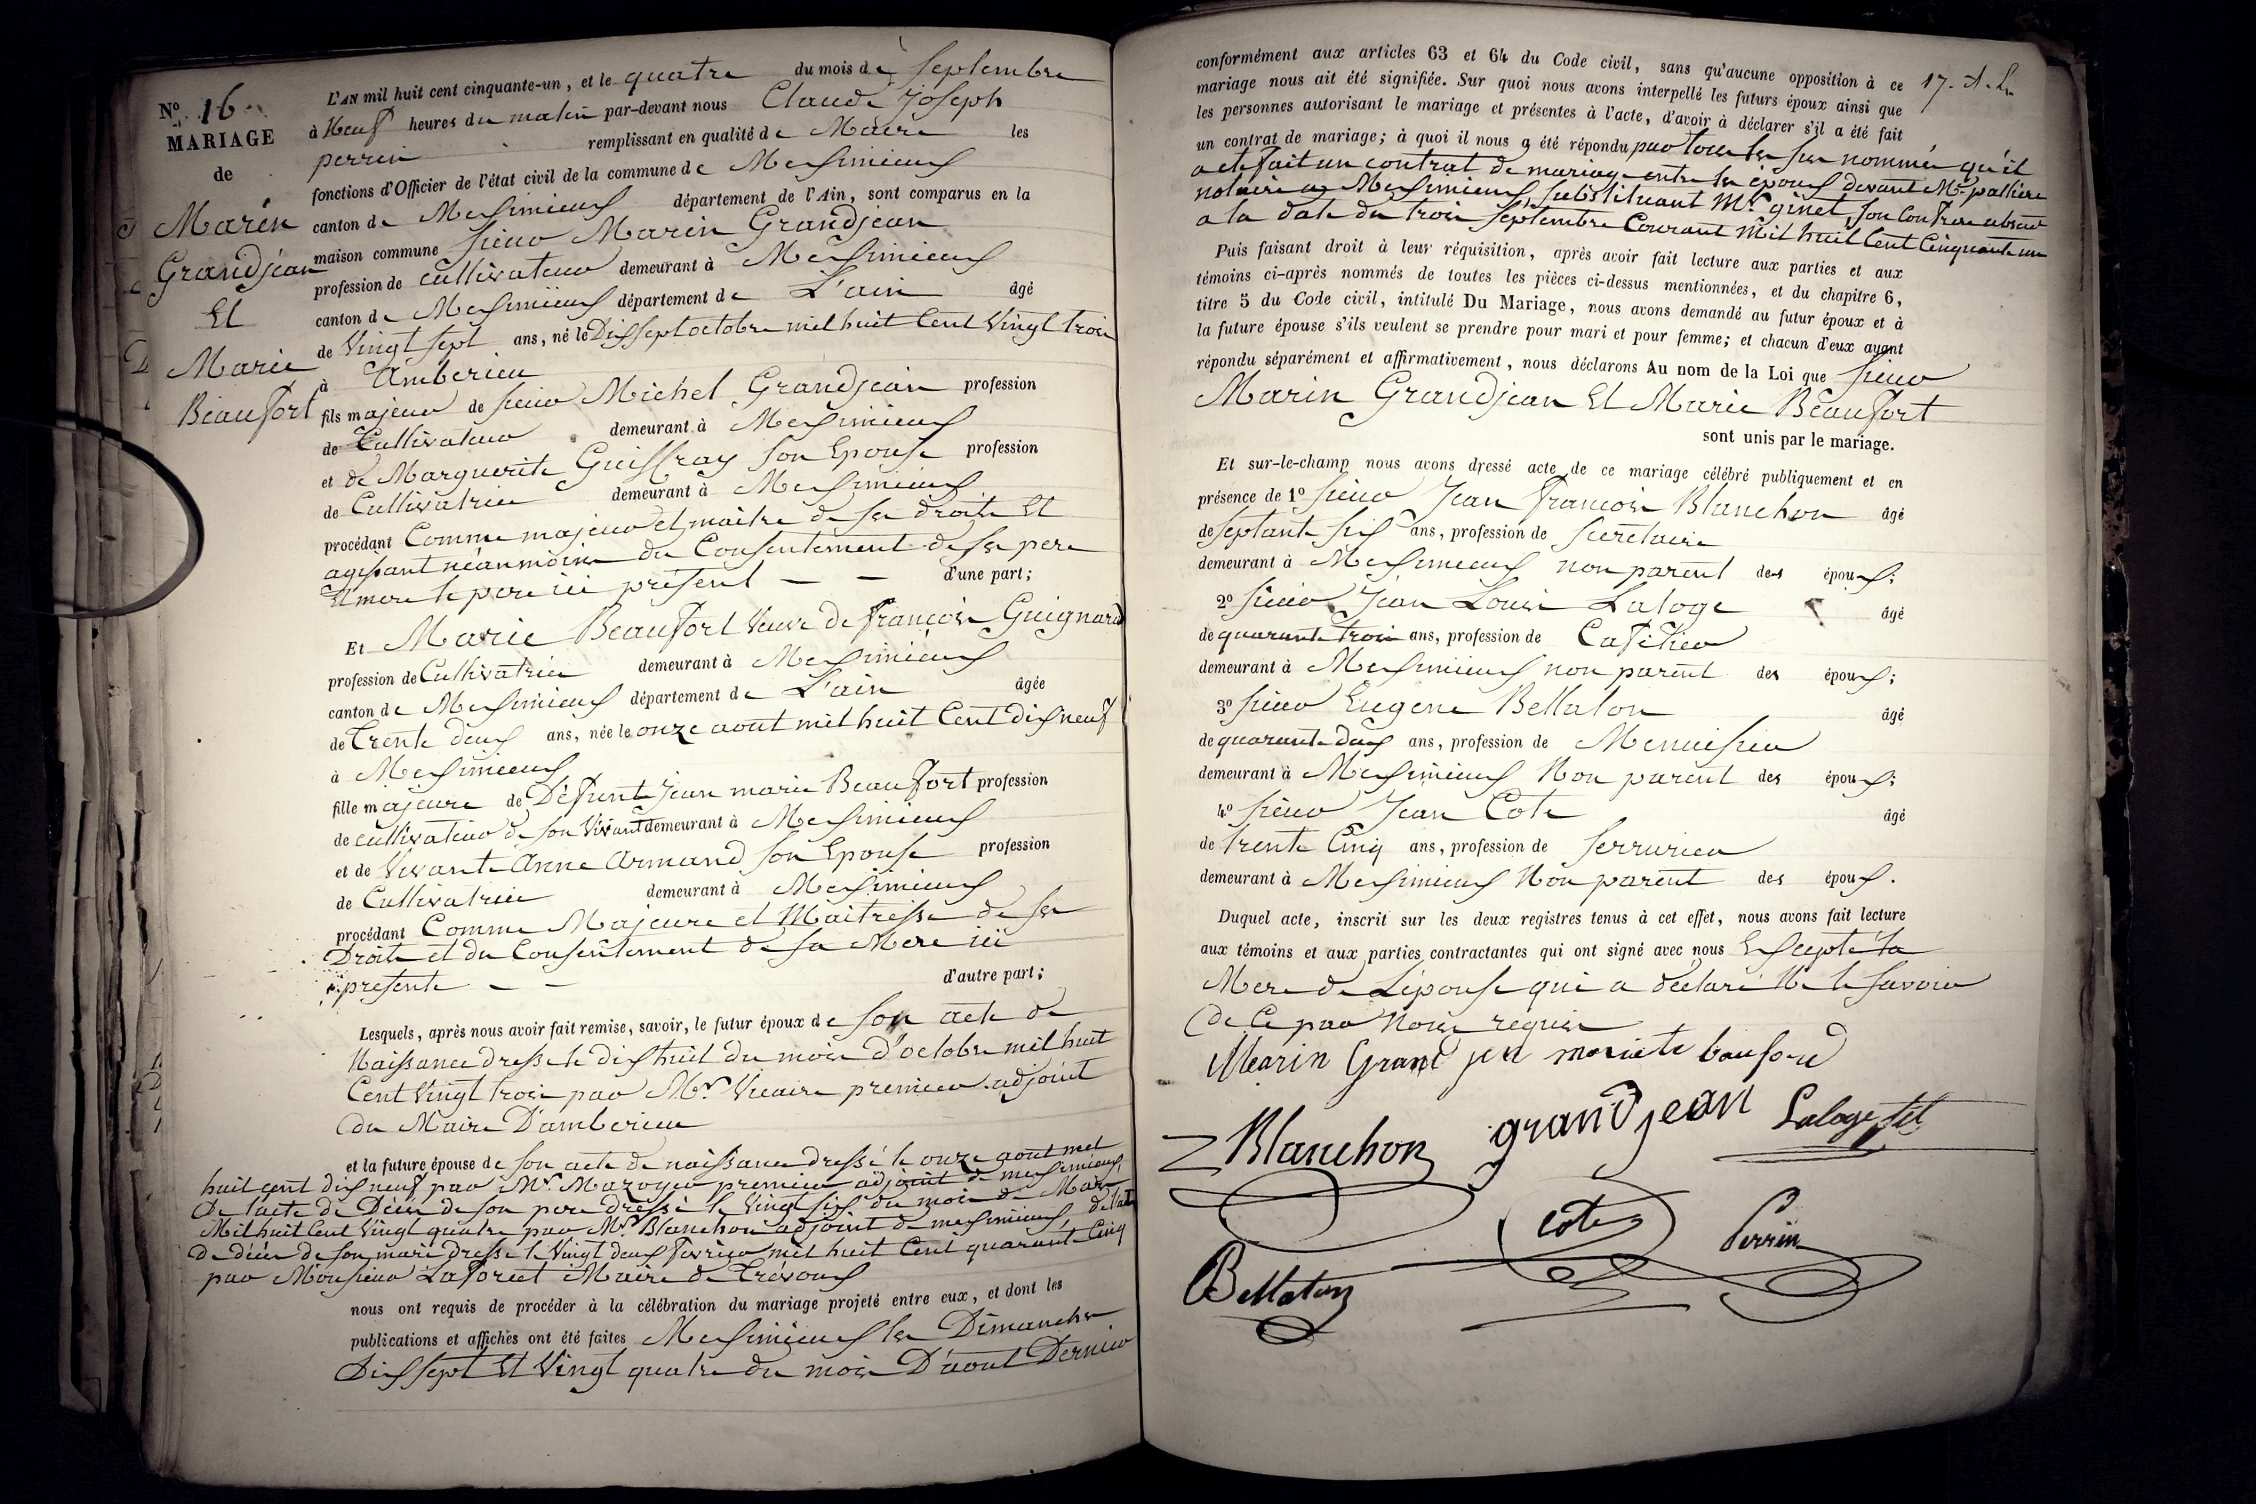 No. 16
MARIAGE
de
Marin
Grandjean
Et
Marie
Beaufort
L'AN mil huit cent cinquante-un, et le quatre du mois de Septembre
à Neuf heures du matin par-devant nous Claude Joseph
perrin remplissant en qualité de Maire les
fonctions d'Officier de l'état civil de la commune de Messimieux
canton de Messimieux département de l'Ain, sont comparus en la
maison commune sieur Marin Grandjean
profession de cultivateur demeurant à Messimieux
canton de Messimieux département de L'ain âgé
de Vingt sept ans, né le Dix sept octobre mil huit Cent Vingt trois
à Amberieu
fils majeur de sieur Michel Grandjean profession
de Cultivateur demeurant à Messimieux
et de Marguerite Guissray son Epouse profession
de Cultivatrice demeurant à Messimieux
procédant Comme majeur et maitre de ses droits Et
agissant néanmoins du Consentement de ses pere
Et mere le pere ici présent — — d'une part;
Et Marie Beaufort Veuve de françois Guignard
profession de Cultivatrice demeurant à Messimieux
canton de Messimieux département de L'ain âgée
de Trente deux ans, née le onze aout mil huit Cent dix neuf
à Messimieux
fille majeure de Défunt Jean marie Beaufort profession
de cultivateur de son Vivant demeurant à Messimieux
et de Vivante Anne Armand son Epouse profession
de Cultivatrice demeurant à Messimieux
procédant Comme Majeure et Maitresse de ses
Droits et du Consentement de sa Mere ici
presente — — d'autre part;
Lesquels, après nous avoir fait remise, savoir, le futur époux de son acte de
Naissance dressé le dix huit du mois d'octobre mil huit
Cent Vingt trois par Mr. Vicaire premier adjoint
du Maire D'amberieu
et la future épouse de son acte de naissance dressé le onze aout mil
huit cent dix neuf par Mr. Mazoyer premier adjoint de messimieux,
De l'acte de Décès de son pere dressé le Vingt six du mois de Mars
Mil huit Cent Vingt quatre par Mr. Blanchon adjoint de messimieux, de l'acte
De décès de son mari dressé le Vingt deux fevrier mil huit Cent quarante Cinq
par Monsieur Laforest Maire de Trévoux
nous ont requis de procéder à la célébration du mariage projeté entre eux, et dont les
publications et affiches ont été faites Messimieux les Dimanches
Dix sept Et Vingt quatre du mois D'aout Dernier
conformément aux articles 63 et 64 du Code civil, sans qu'aucune opposition à ce
mariage nous ait été signifiée. Sur quoi nous avons interpellé les futurs époux ainsi que
les personnes autorisant le mariage et présentes à l'acte, d'avoir à déclarer s'il a été fait
un contrat de mariage; à quoi il nous a été répondu par tous les sus nommés qu'il
a eté fait un contrat de mariage entre les époux devant Me palliere
notaire a Messimieux, substituant Mr ginet, son Confrere absent
a la date du trois septembre Courant Mil huit Cent Cinquante un
17.
Puis faisant droit à leur réquisition, après avoir fait lecture aux parties et aux
témoins ci-après nommés de toutes les pièces ci-dessus mentionnées, et du chapitre 6,
titre 5 du Code civil, intitulé Du Mariage, nous avons demandé au futur époux et à
la future épouse s'ils veulent se prendre pour mari et pour femme; et chacun d'eux ayant
répondu séparément et affirmativement, nous déclarons Au nom de la Loi que sieur
Marin Grandjean Et Marie Beaufort
sont unis par le mariage.
Et sur-le-champ nous avons dressé acte de ce mariage célébré publiquement et en
présence de 1o sieur Jean françois Blanchon âgé
de septante six ans, profession de secretaire
demeurant à Messimieux non parent des époux;
2o sieur Jean Louis Laloge âgé
de quarante trois ans, profession de Cafetier
demeurant à Messimieux non parent des époux;
3o sieur Eugene Bellaton âgé
de quarante deux ans, profession de Menuisier
demeurant à Messimieux Non parent des époux;
4o sieur Jean Cote âgé
de trente Cinq ans, profession de serrurier
demeurant à Messimieux Non parent des époux.
Duquel acte, inscrit sur les deux registres tenus à cet effet, nous avons fait lecture
aux témoins et aux parties contractantes qui ont signé avec nous Excepté la
Mere de L'épouse qui a déclaré Ne le savoir
De Ce par Nous requise
Mearin Grand jen mariete bauford
Blanchon grandjean Laloge fil
cote Perrin
Bellaton